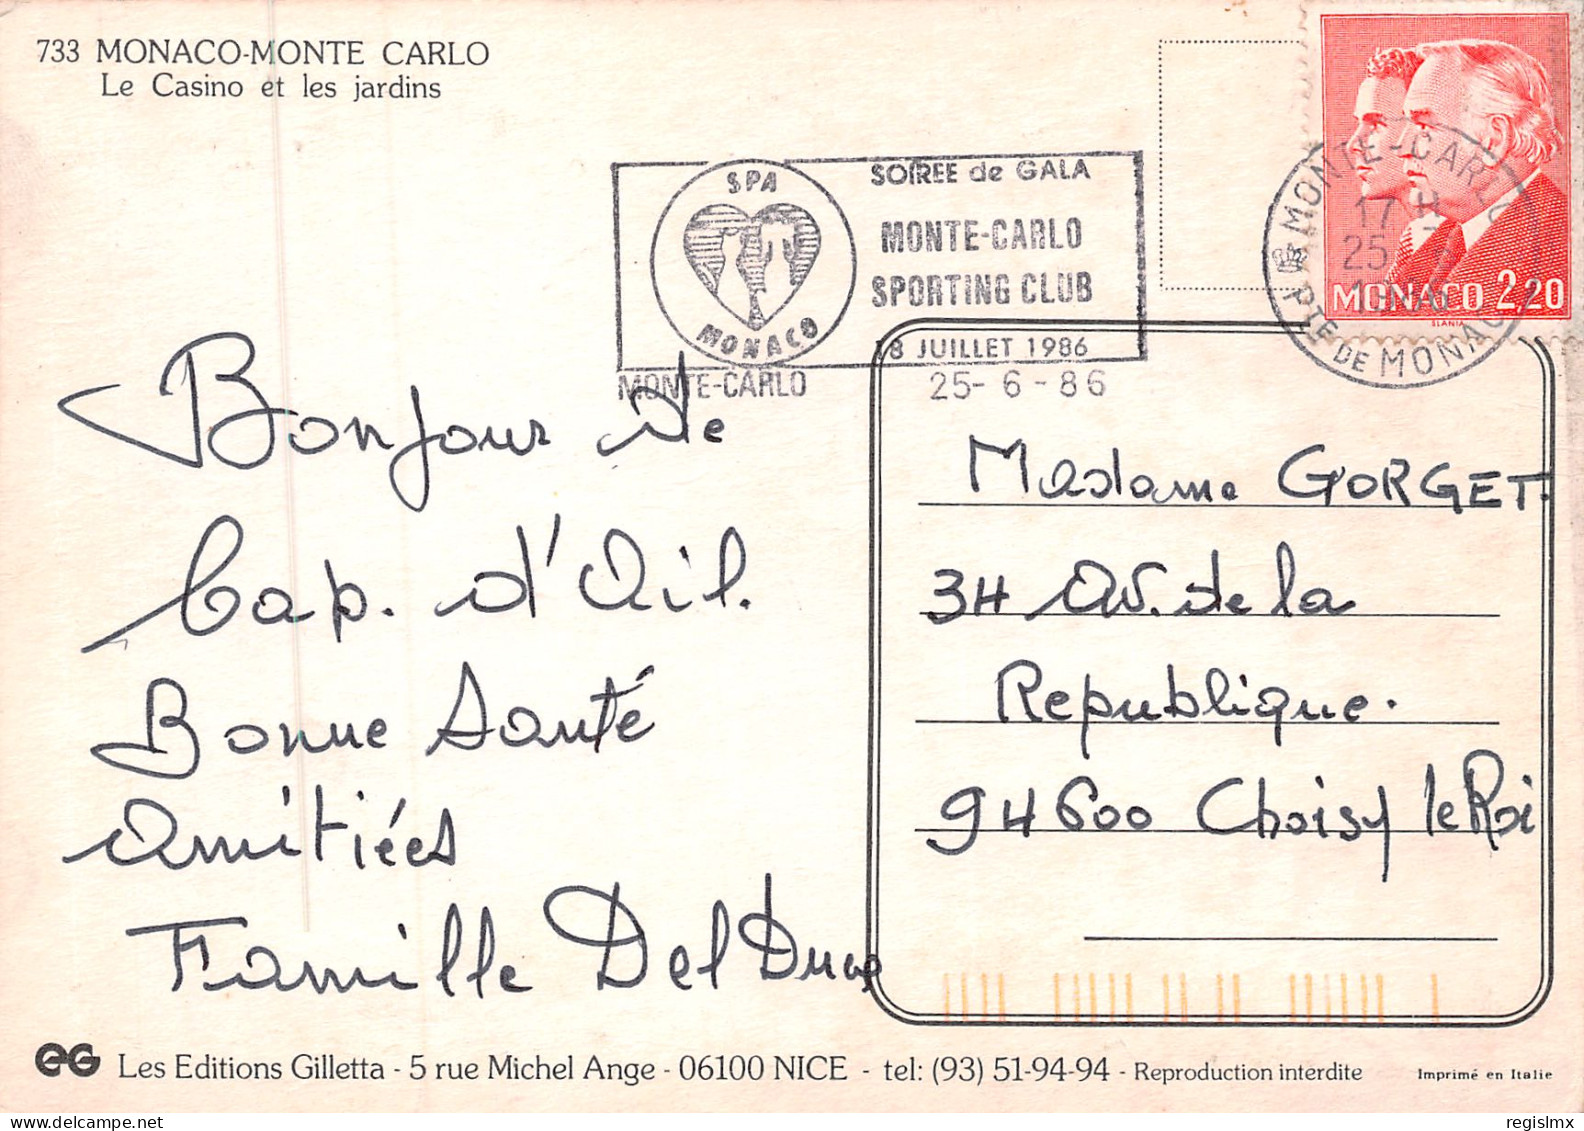 733 MONACO-MONTE CARLO
Le Casino et les jardins
SPA
MONACO
SOIREE de GALA
MONTE-CARLO
SPORTING CLUB
18 JUILLET 1986
MONTE-CARLO
25-6-86
MONTE-CARLO
17 H
25
PTE DE MONACO
MONACO 2,20
SLANIA
Bonjour de
Cap. d'Ail.
Bonne Santé
Amitiées
Famille Del Duca
Madame GORGET.
34 Av. de la
Republique.
94600 Choisy le Roi
eG Les Editions Gilletta - 5 rue Michel Ange - 06100 NICE - tel: (93) 51-94-94 - Reproduction interdite
Imprimé en Italie
regislmx